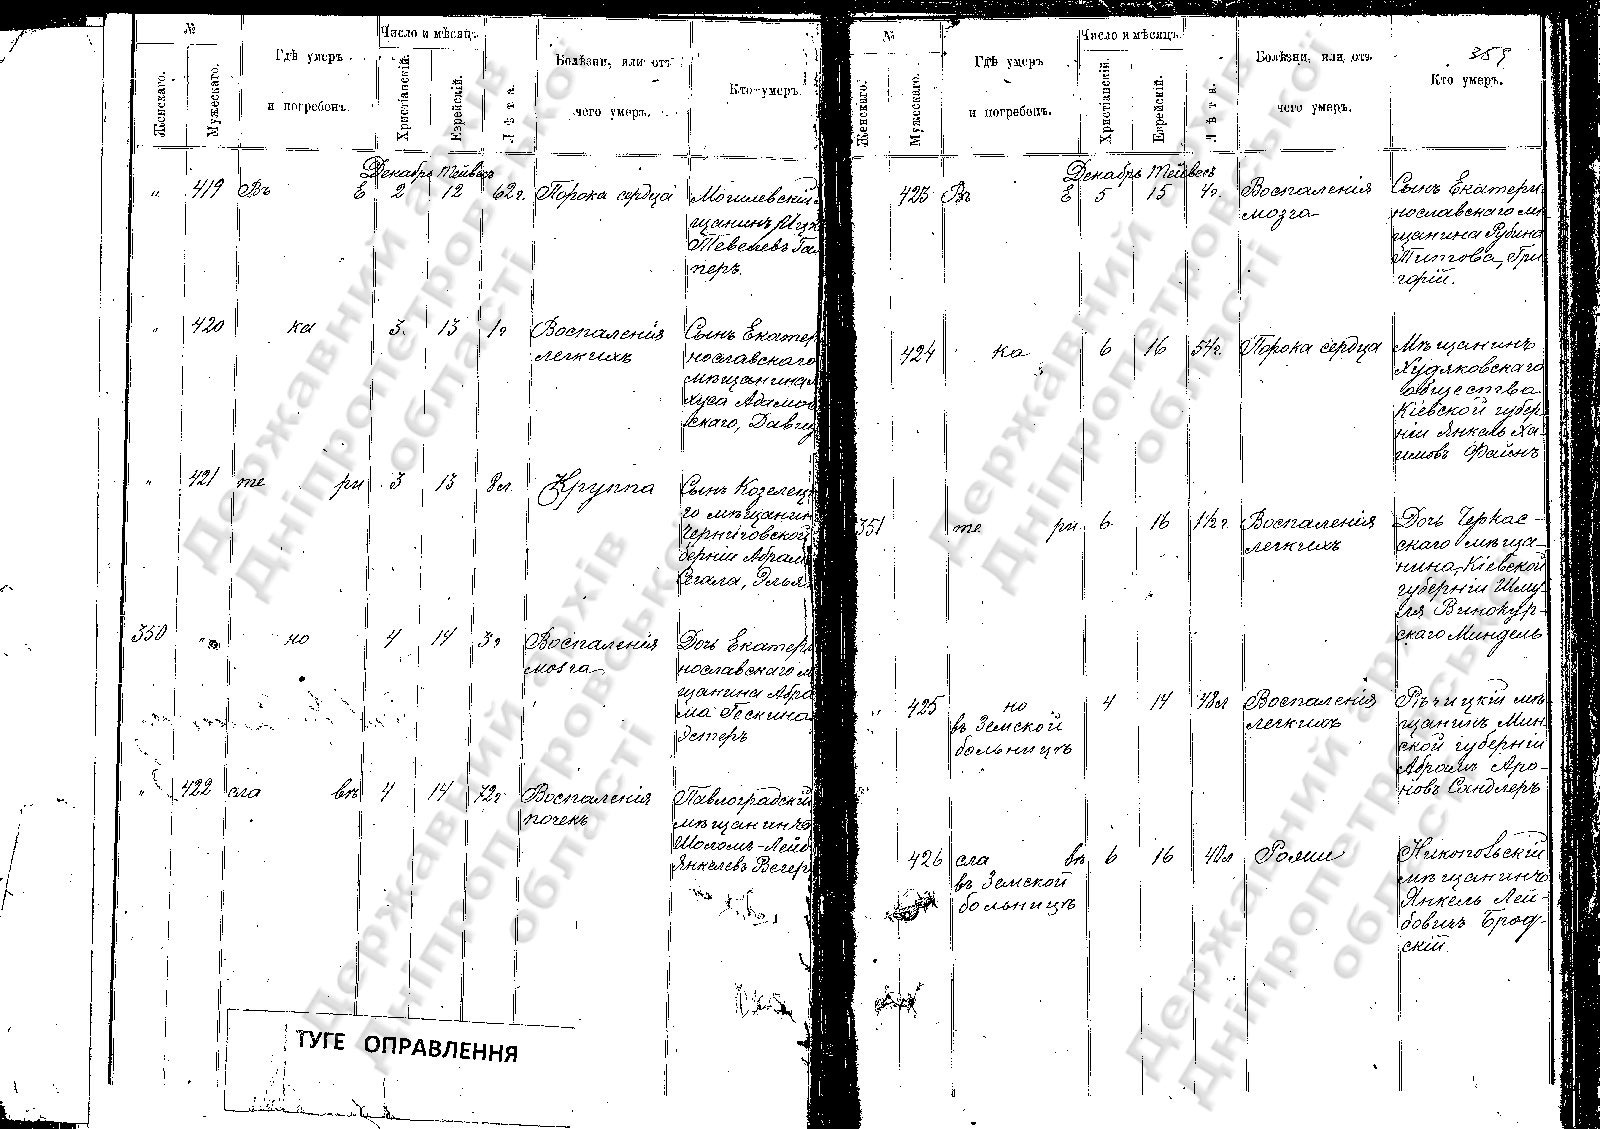 №
Число и мѣсяцъ.
Женскаго.
Мужескаго.
Гдѣ умеръ
и погребенъ.
Христіанскій.
Еврейскій.
Лѣта.
Болѣзни, или отъ
чего умеръ.
Кто умеръ.
Декабрь Тейвесъ
" 419 Въ Е 2 12 62 г. Порока сердца
Могилевскій
щанинъ
Тевелевъ Га
перъ.
" 420 ка 3 13 1 г Воспаленія
легкихъ
Сынъ Екатер
нославскаго
мѣщанина
хуса Адамов
скаго, Давид
" 421 те ри 3 13 8 л Круппа
Сынъ Козелец
го мѣщанин
Черниговской
берніи Абрам
Сегала, Элья
350 " но 4 14 3 г Воспаленія
мозга
Дочь Екатер
нославскаго м
щанина Абра
ма Гескина
Эстеръ
" 422 сла вѣ 4 14 72 г Воспаленія
почекъ
Павлоградскій
мѣщанинъ
Шоломъ-Лейб
Янкелевъ Вегер
ТУГЕ ОПРАВЛЕННЯ
359
№
Число и мѣсяцъ.
Женскаго.
Мужескаго.
Гдѣ умеръ
и погребенъ.
Христіанскій.
Еврейскій.
Лѣта.
Болѣзни, или отъ
чего умеръ.
Кто умеръ.
Декабрь Тейвесъ
423 Въ Е 5 15 4 г. Воспаленія
мозга
Сынъ Екатери
нославскаго мѣ
щанина Рубина
Титова, Гри
горій.
424 ка 6 16 54 г. Порока сердца
Мѣщанинъ
Худяковскаго
общества
Кіевской губер
ніи Янкель Ха-
имовъ Файнъ
351 те ри 6 16 1½ г. Воспаленія
легкихъ
Дочь Черкас-
скаго мѣща-
нина, Кіевской
губерніи Шму-
ля Винокур-
скаго Миндель
" 425 но 4 14 48 л Воспаленія
въ Земской
больницѣ
легкихъ
Рѣчицкій мѣ
щанинъ Мин
ской губерніи
Абрамъ Аро-
новъ Сандлеръ
426 сла вѣ 6 16 40 л Рожи
въ Земской
больницѣ
Никопольскій
мѣщанинъ
Янкель Лей-
бовичъ Брод-
скій.
Державний архів
Дніпропетровської
області